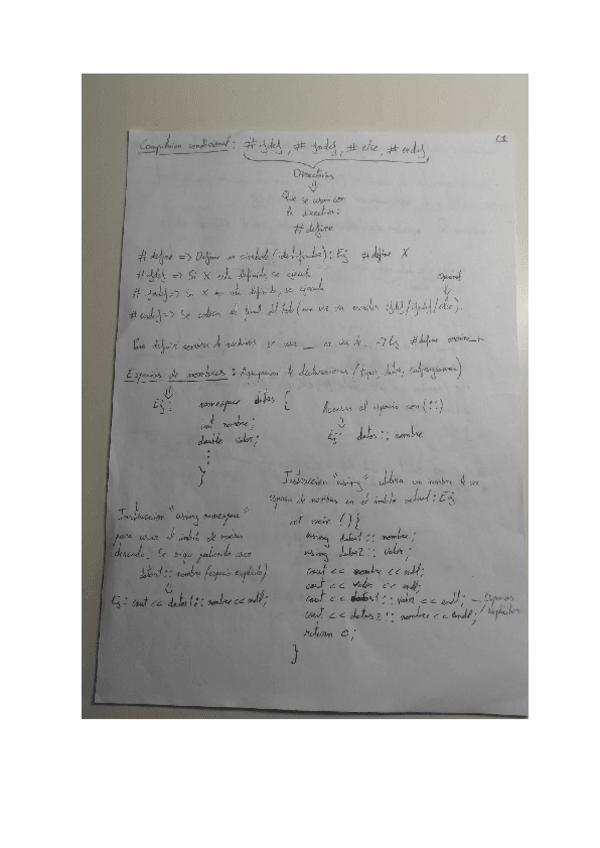 Compilación condicional: #ifdef, #ifndef, #else, #endif
Directivas
Que se usan con
la directiva:
#define
#define => Define un símbolo (identificador): Ej #define X
#ifdef => Si X está definido, se ejecuta
opcional
#ifndef => Si X no está definido, se ejecuta
#endif => Se coloca al final del todo (una vez se escriben ifdef/ifndef/else).
Para definir nombres de archivos se usa _ en vez de . -> Ej #define
Espacios de nombres: Agrupación de declaraciones (tipos, datos, subprogramas)
Ej: namespace datos {
int nombre;
double valor;
}
Acceso al espacio con (::)
Ej: datos::nombre
Instrucción "using" utiliza un nombre de un
espacio de nombres en el ámbito actual: Ej
Instrucción "using namespace"
para usar el ámbito de nombres
deseado. Se sigue pudiendo usar
datos1::nombre (espacio explícito)
Ej: cout << datos1::nombre << endl;
int main () {
using datos1::nombre;
using datos2::valor;
cout << nombre << endl;
cout << valor << endl;
cout << datos1::valor << endl; Espacios
cout << datos2::nombre << endl; explícitos
return 0;
}